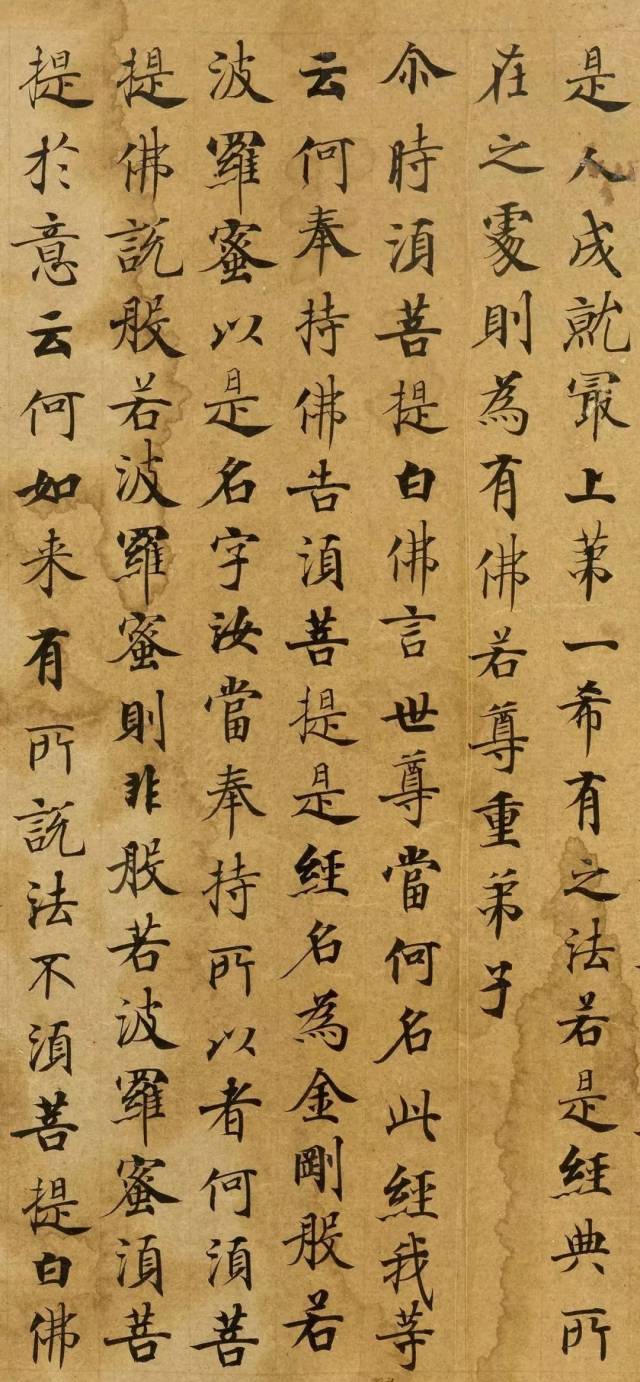 是人成就最上苐一希有之法若是經典所
在之處則為有佛若尊重弟子
尒時湏菩提白佛言世尊當何名此經我等
云何奉持佛告湏菩提是經名為金剛般若
波羅蜜以是名字汝當奉持所以者何湏菩
提佛說般若波羅蜜則非般若波羅蜜湏菩
提於意云何如来有所說法不湏菩提白佛